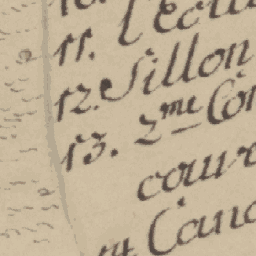 10.
11. l'écu
12. Sillon
13. 2.me Cor
couve
14 Cana